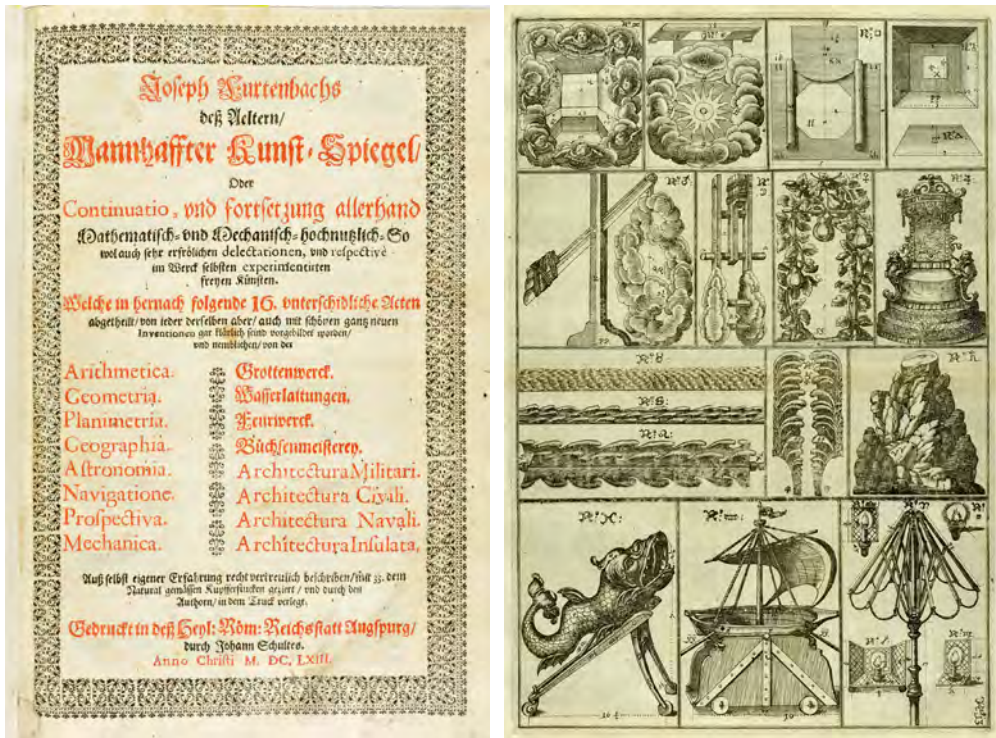 Joseph Furtenbachs
deß Aeltern/
Mannhaffter Kunst-Spiegel/
Oder
Continuatio, vnd fortsetzung allerhand
Mathematisch- vnd Mechanisch- hochnutzlich- So
wol auch sehr erfrölichen delectationen, vnd respectivè
im Werck selbsten experimentirten
freyen Künsten.
Welche in hernach folgende 16. vnterschidliche Acten
abgetheilt/ von jeder derselben aber/ auch mit schönen gantz neuen
Inventionen gar klärlich seind vorgebildet worden/
vnd nemblichen/ von der
Arithmetica.
Geometria.
Planimetria.
Geographia.
Astronomia.
Navigatione.
Prospectiva.
Mechanica.
Grottenwerck.
Wasserlaittungen.
Feurwerck.
Büchsenmeisterey.
Architectura Militari.
Architectura Civili.
Architectura Navali.
Architectura Insulata.
Auß selbst eigener Erfahrung recht vertreulich beschriben/ mit 33. dem
Natural gemässen Kupfferstucken geziert/ vnd durch den
Authorn/ in dem Truck verlegt.
Gedruckt in deß Heyl: Röm: Reichsstatt Augspurg/
durch Johann Schultes.
Anno Christi M. DC. LXIII.